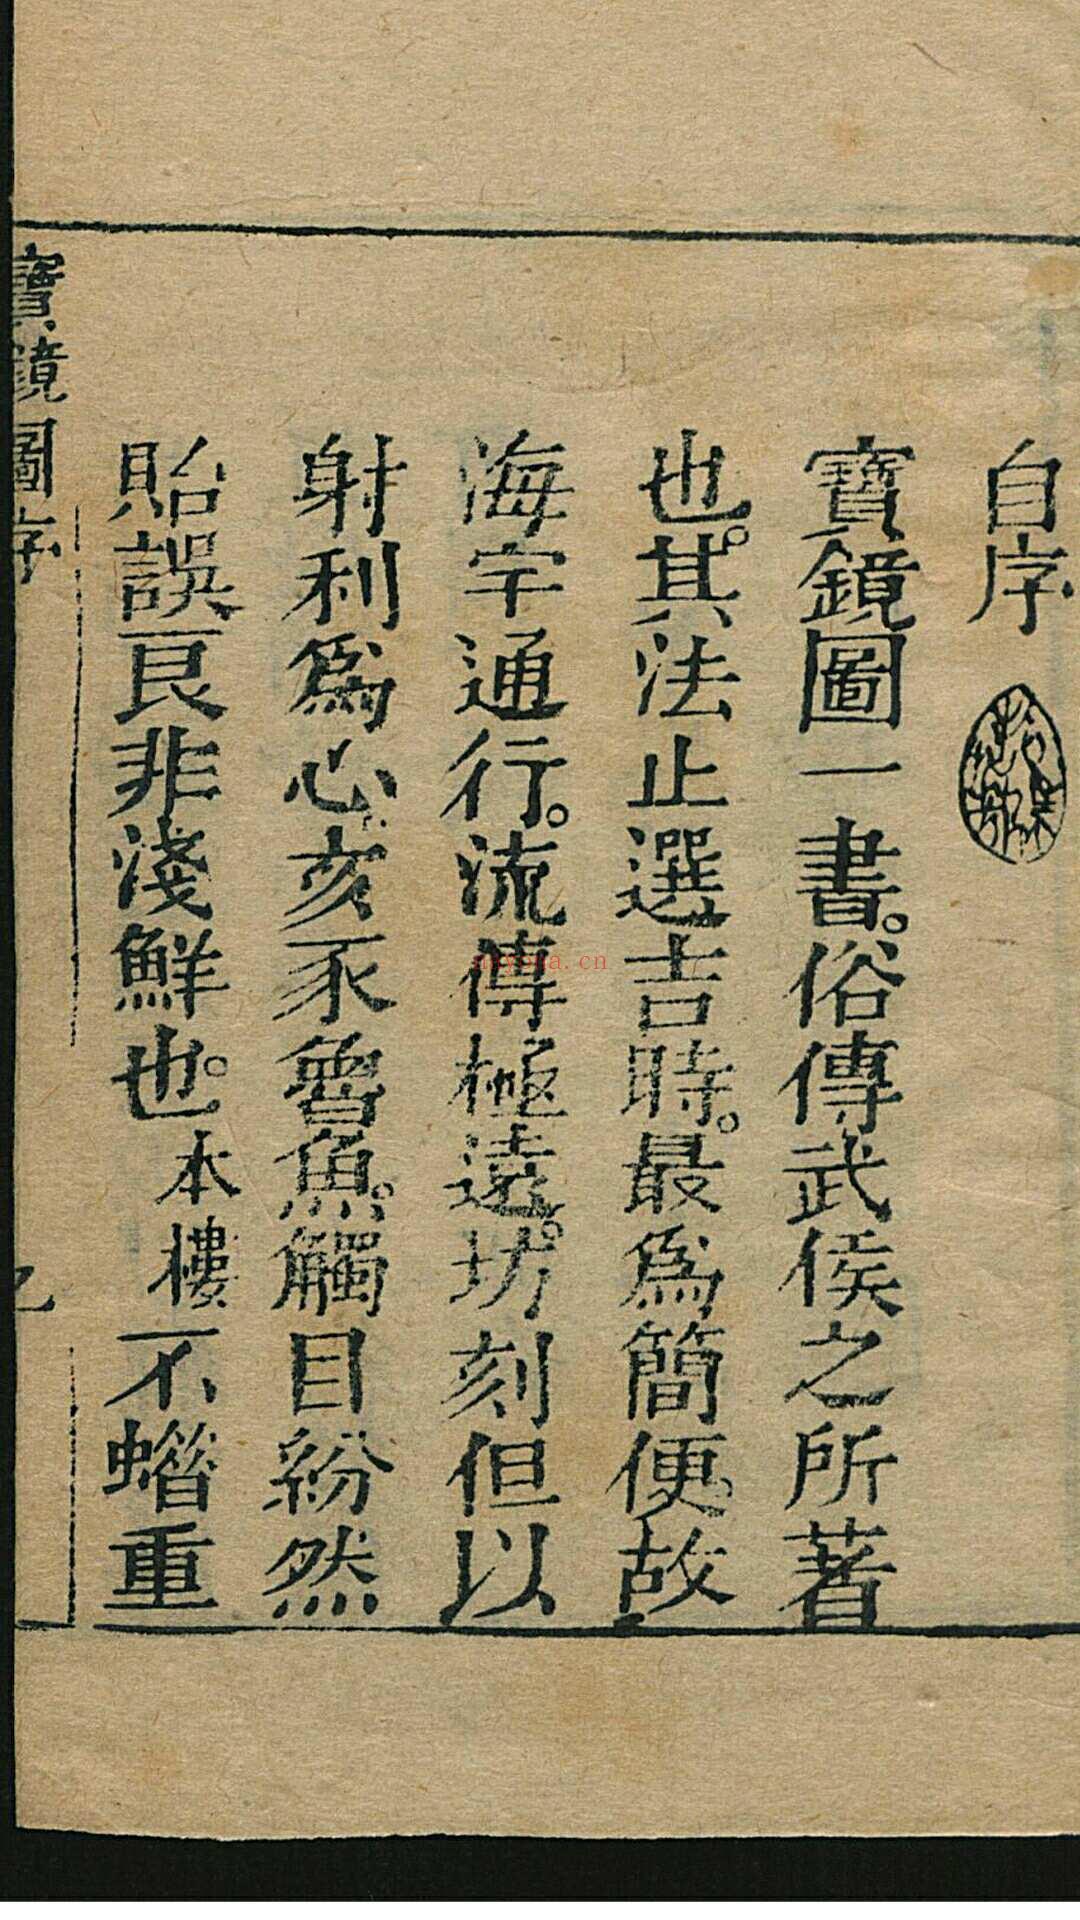 自序
寶鏡圖一書。俗傳武侯之所著
也。其法止選吉時。最爲簡便。故
海宇通行。流傳極遠。坊刻但以
射利爲心。亥豕魯魚。觸目紛然
貽誤良非淺鮮也。本樓不蠟重
寶鏡圖序